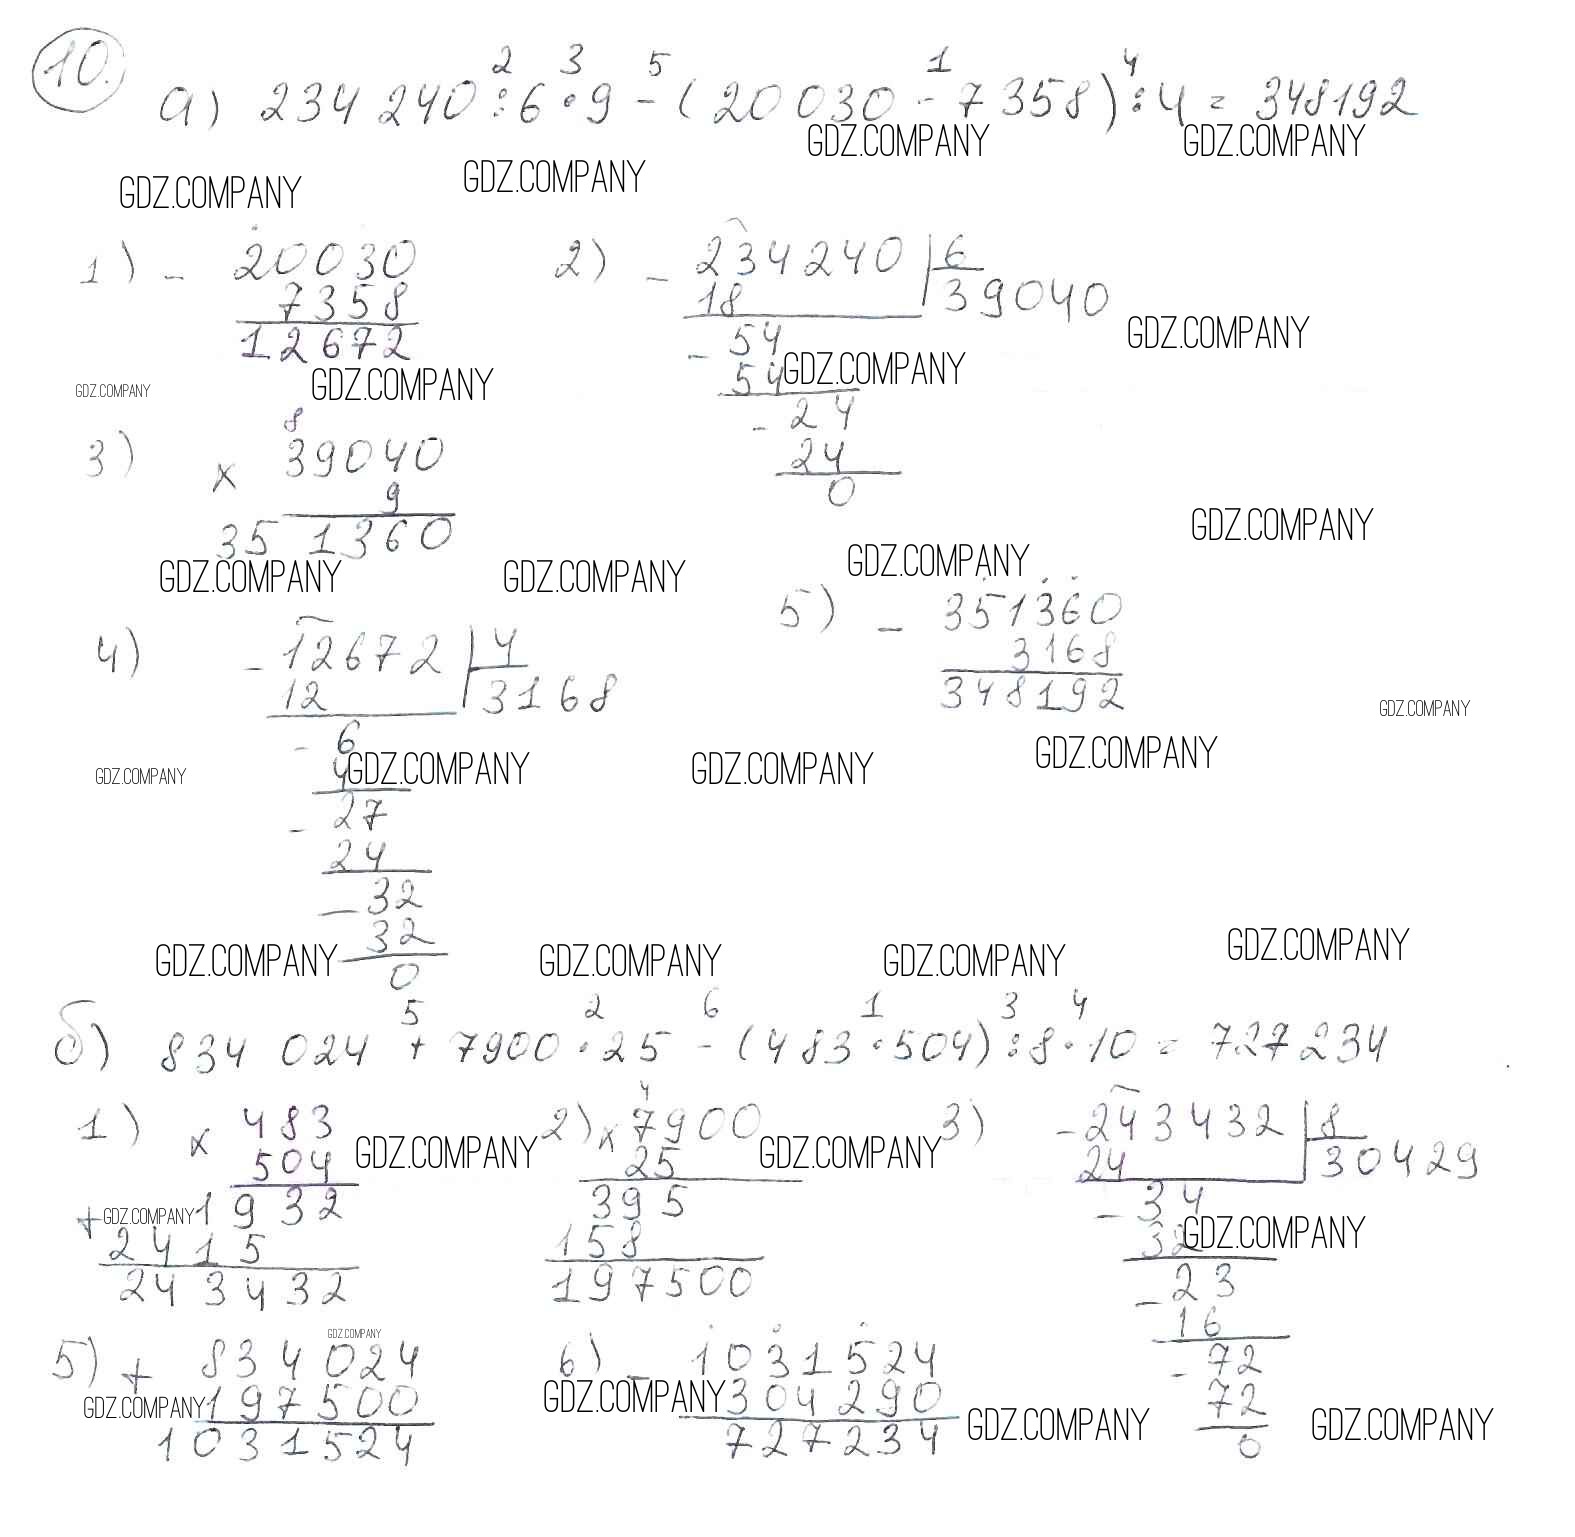 10.
2 3 5 1 4
а) 234 240 : 6 · 9 - (20 030 - 7 358) : 4 = 348192
GDZ.COMPANY GDZ.COMPANY
GDZ.COMPANY GDZ.COMPANY
1) - 20030
7358
12672
2) - 234240 | 6
18 39040
- 54
54
- 24
24
0
GDZ.COMPANY
GDZ.COMPANY
GDZ.COMPANY GDZ.COMPANY
3) 8
x 39040
9
35 1360
GDZ.COMPANY
GDZ.COMPANY
GDZ.COMPANY GDZ.COMPANY
4) - 12672 | 4
12 3168
- 6
4
- 27
24
- 32
32
0
5) - 351360
3168
348192
GDZ.COMPANY
GDZ.COMPANY
GDZ.COMPANY GDZ.COMPANY GDZ.COMPANY
GDZ.COMPANY GDZ.COMPANY GDZ.COMPANY GDZ.COMPANY
5 2 6 1 3 4
б) 834 024 + 7900 · 25 - (483 · 504) : 8 · 10 = 727234
1) x 483
504
+ 1932
2415
243432
2) 4
x 7900
25
395
158
197500
3) - 243432 | 8
24 30429
- 34
32
- 23
16
- 72
72
0
GDZ.COMPANY GDZ.COMPANY
GDZ.COMPANY GDZ.COMPANY
GDZ.COMPANY
5) + 834024
197500
1031524
6) - 1031524
304290
727234
GDZ.COMPANY GDZ.COMPANY GDZ.COMPANY GDZ.COMPANY